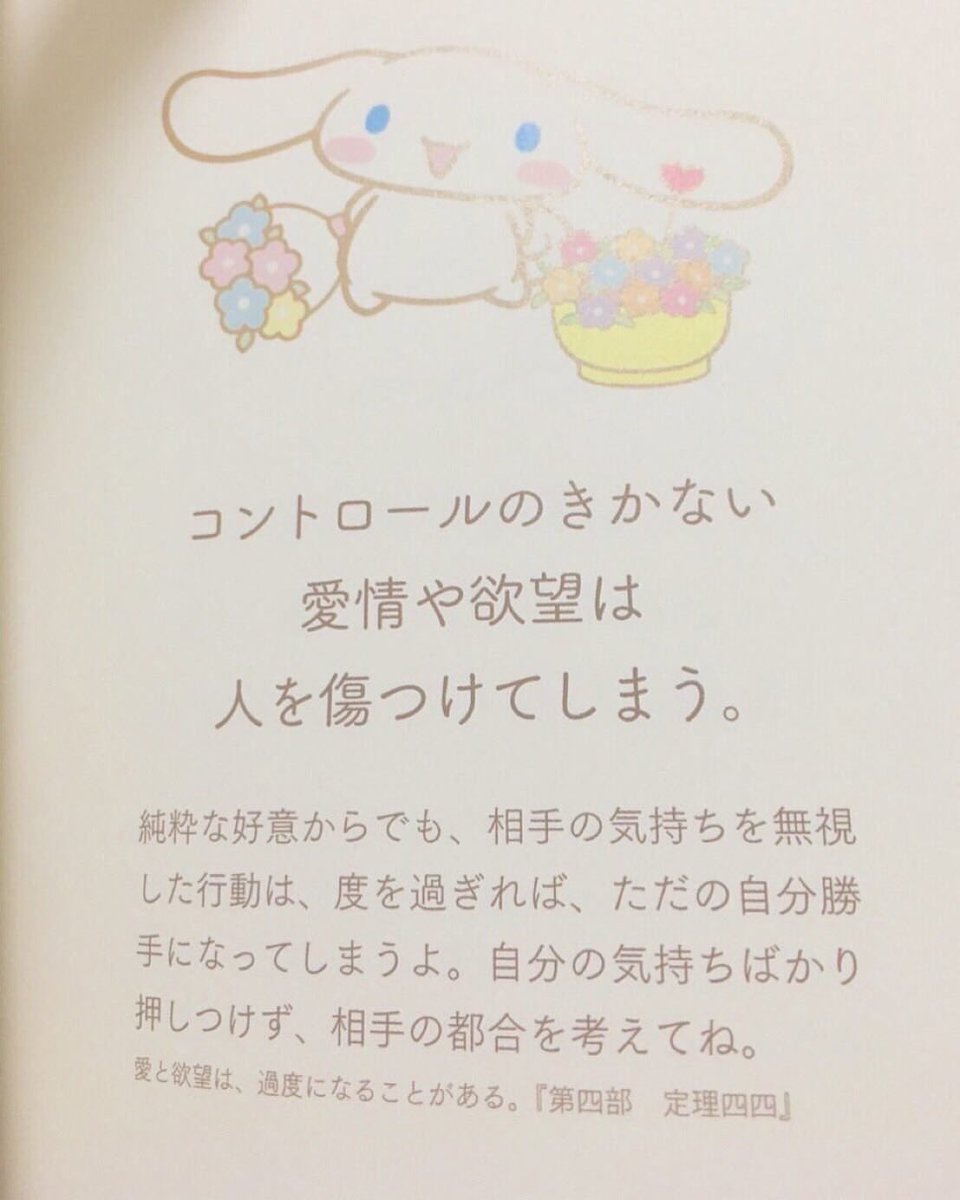 コントロールのきかない
愛情や欲望は
人を傷つけてしまう。
純粋な好意からでも、相手の気持ちを無視
した行動は、度を過ぎれば、ただの自分勝
手になってしまうよ。自分の気持ちばかり
押しつけず、相手の都合を考えてね。
愛と欲望は、過度になることがある。『第四部　定理四四』